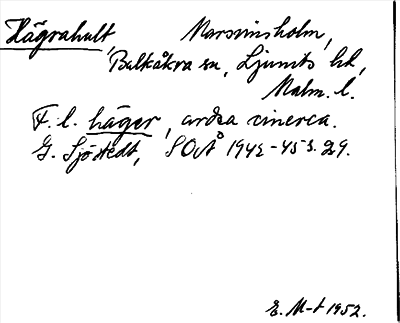 Hägrahult, Marsvinsholm,
Balkåkra sn, Ljunits hd,
Malm. l.
F. l. häger, ardea cinerea.
G. Sjöstedt, SOÅ 1942-45 s. 29.
E. M-t 1952.